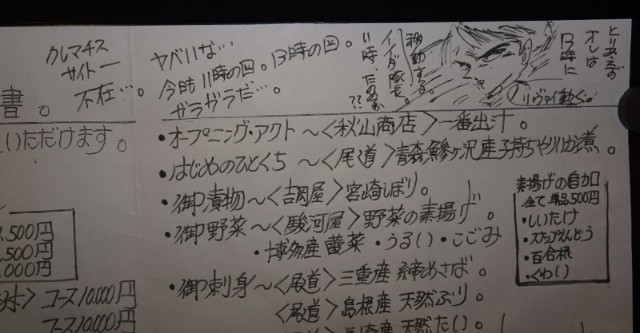 クレマチス
サイトー
不在…。
ヤバいな…
今時11時の回。13時の回。
ガラガラだ…。
移動する。
とりあえず
オレは
13時に
リヴァイ動く。
書。
いただけます。
・オープニング・アクト ～〈秋山商店〉一番出汁。
・はじめのひとくち ～〈尾道〉青森鰺ヶ沢産子持ちやりいか煮。
・御漬物～〈胡屋〉宮崎しぼり。
・御野菜～〈駿河屋〉野菜の素揚げ。
・博多産蕾菜・うるい・こごみ
・御刺身～〈尾道〉三重産 締めさば。
〈尾道〉島根産 天然ぶり。
天然たい。
素揚げの自由
全て単品500円
・しいたけ
・スナップえんどう
・百合根
・くわい
,500円
500円
,000円
コース10,000円
コース10,000円